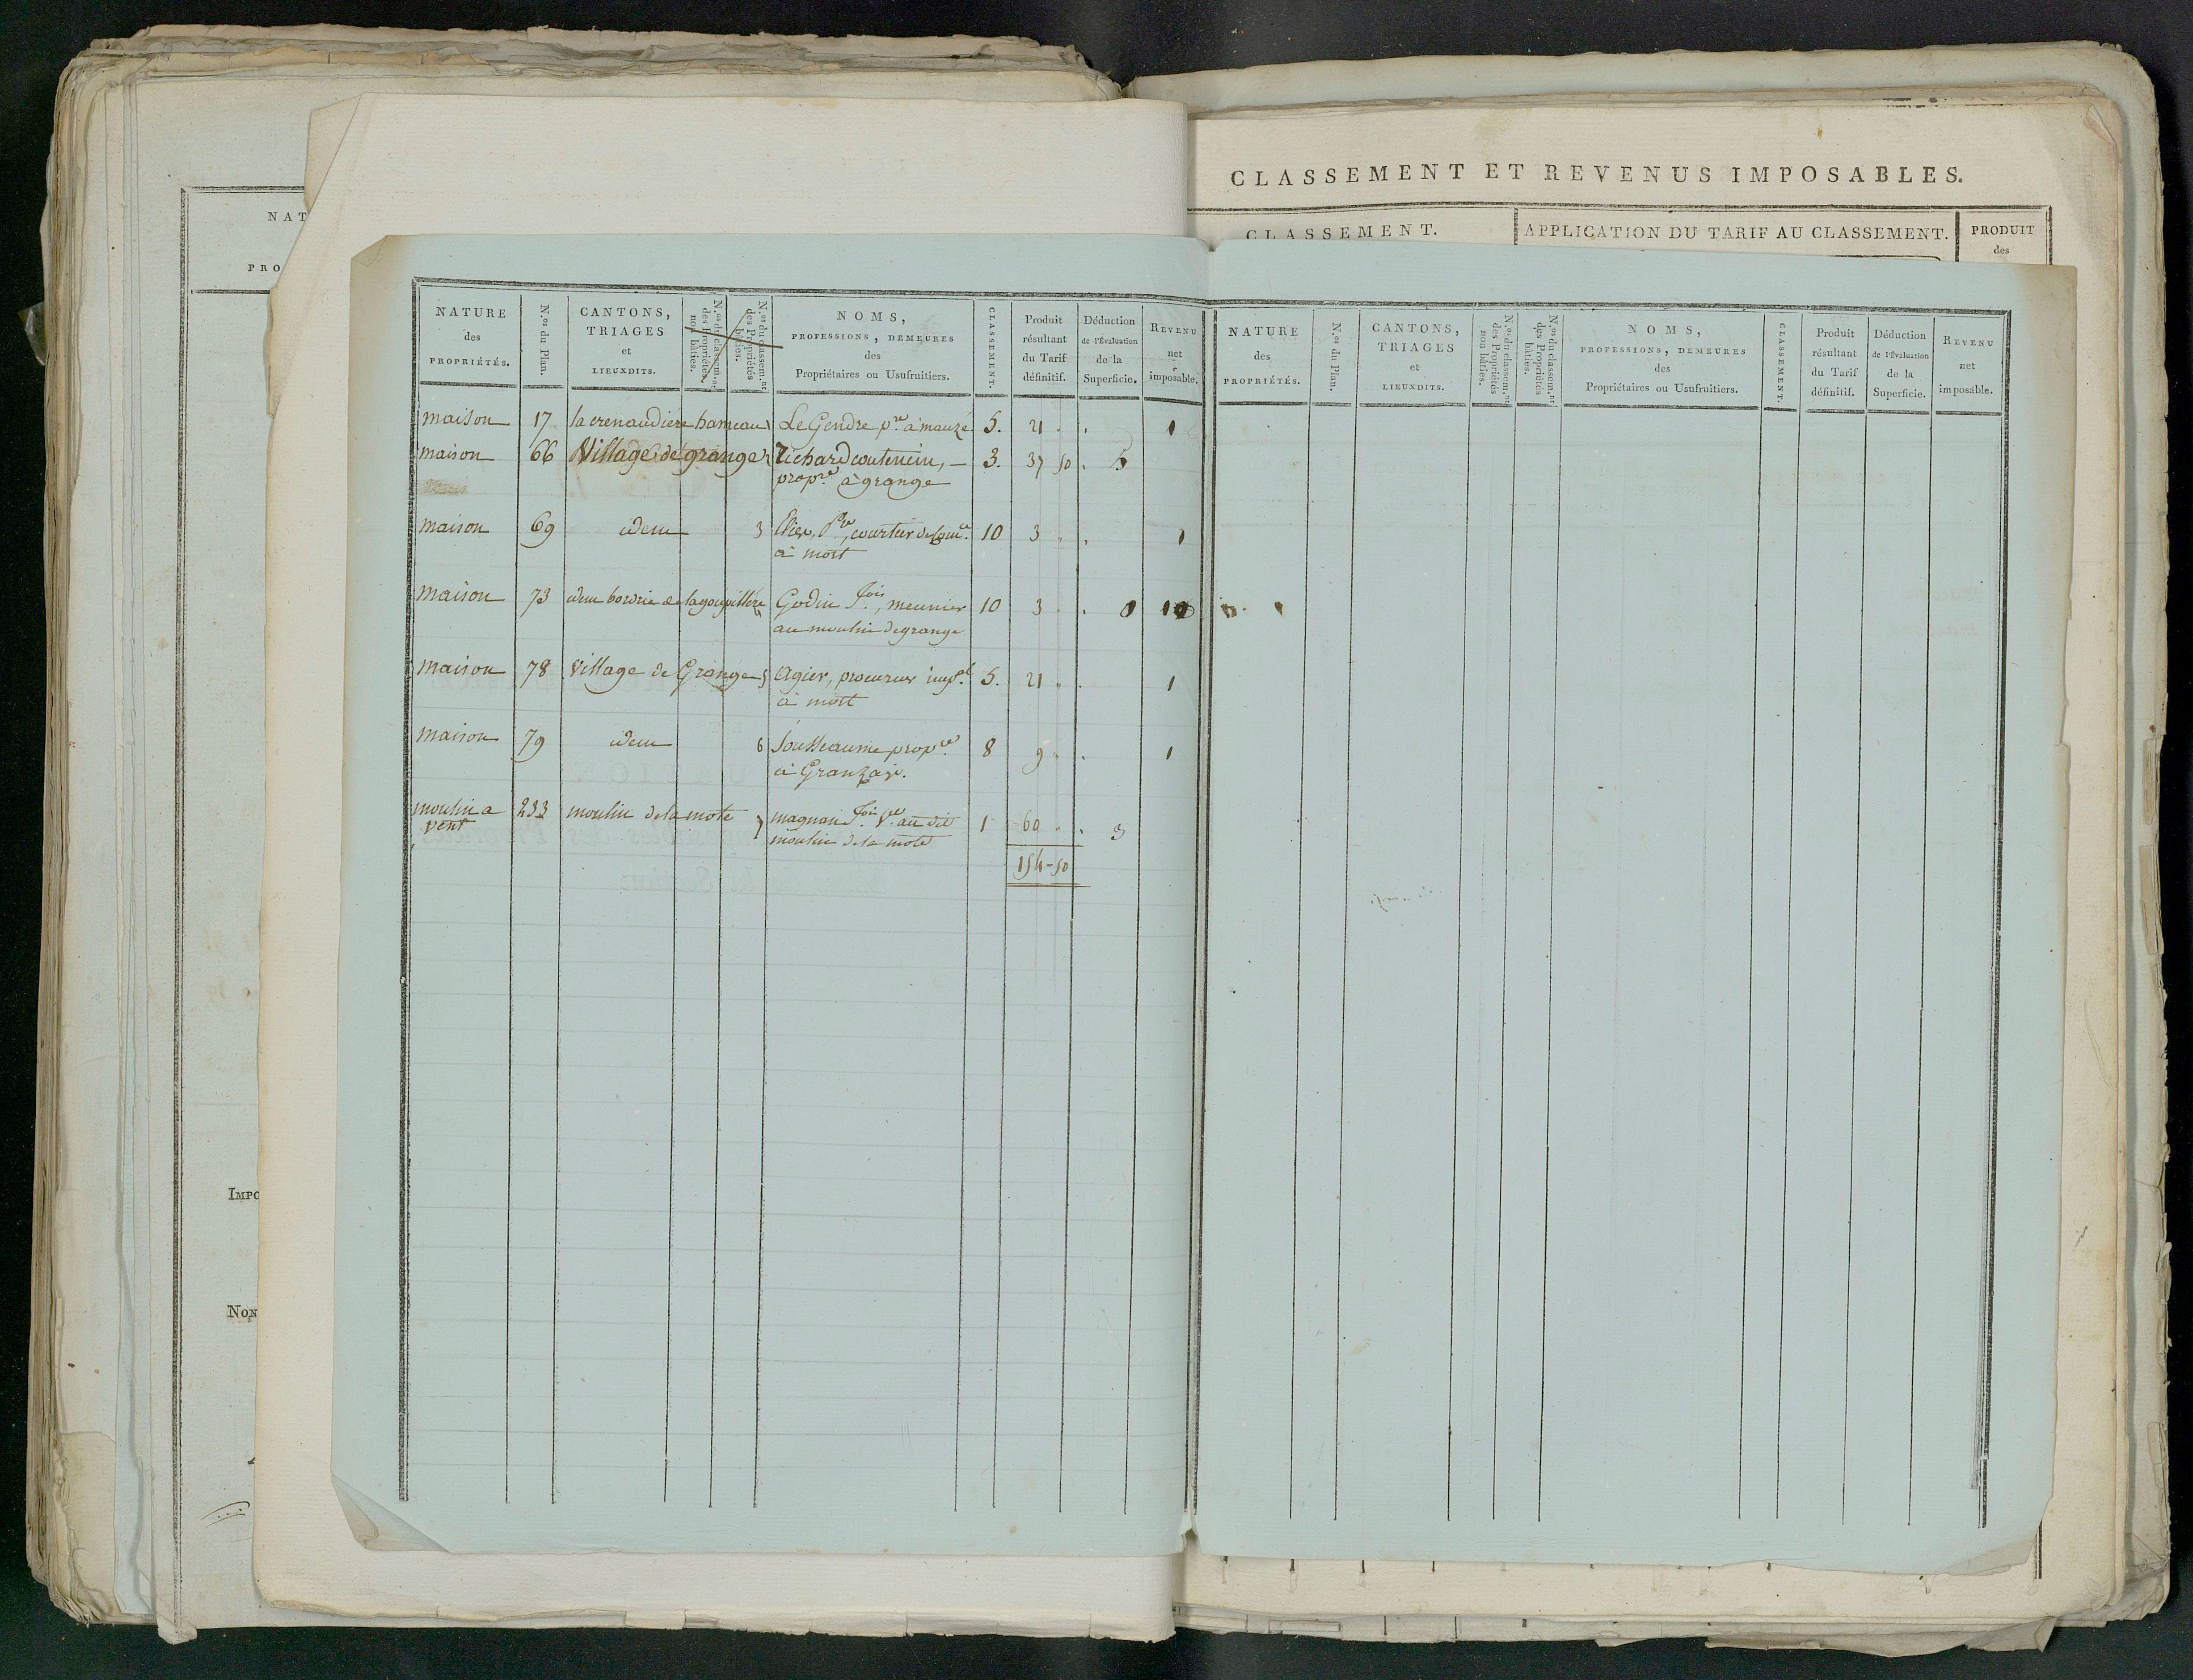 CLASSEMENT ET REVENUS IMPOSABLES.
CLASSEMENT. APPLICATION DU TARIF AU CLASSEMENT. PRODUIT
des
NAT
PRO
IMPO
NON
NATURE
des
PROPRIÉTÉS.
N.os du Plan.
CANTONS,
TRIAGES
et
LIEUXDITS.
N.os du classem.nt
des Propriétés
non bâties.
N.os du classem.nt
des Propriétés
bâties.
NOMS,
PROFESSIONS, DEMEURES
des
Propriétaires ou Usufruitiers.
CLASSEMENT.
Produit
résultant
du Tarif
définitif.
Déduction
de l'Évaluation
de la
Superficie.
REVENU
net
imposable.
maison 17 la crenaudière hameau 1 LeGendre p.re à mauzé 5. 21 1
maison 66 Village de grange 2 Richard, — 3. 37 50 5
prop.re à grange
maison 69 idem 3 courtier 10 3 1
à niort
maison 73 idem de la goupillère Godin f.ois, meunier 10 3
au moulin de grange
maison 78 Village de Grange 5 Agier, procureur imp.l 5. 21 1
à niort
maison 79 idem 6 Jousseaume prop.re 8 9 1
à Granzay.
moulin a 233 moulin de la mote 7 magnan f.ois au dit 1 60 3
vent moulin de la mote
154-50
NATURE
des
PROPRIÉTÉS.
N.os du Plan.
CANTONS,
TRIAGES
et
LIEUXDITS.
N.os du classem.nt
des Propriétés
non bâties.
N.os du classem.nt
des Propriétés
bâties.
NOMS,
PROFESSIONS, DEMEURES
des
Propriétaires ou Usufruitiers.
CLASSEMENT.
Produit
résultant
du Tarif
définitif.
Déduction
de l'Évaluation
de la
Superficie.
REVENU
net
imposable.